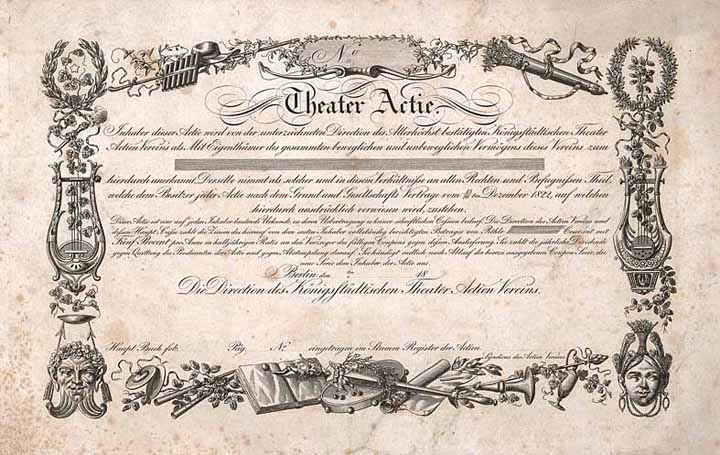 No
Theater Actie.
Inhaber dieser Actie wird von der unterzeichneten Direction des Allerhöchst bestätigten Königsstädtischen Theater
Actien Vereins als Mit Eigenthümer des gesammten beweglichen und unbeweglichen Vermögens dieses Vereins zum
hierdurch anerkannt. Derselbe nimmt als solcher und in diesem Verhältnisse an allen Rechten und Befugnissen Theil,
welche dem Besitzer jeder Actie nach dem Grund und Gesellschafts Vertrage vom ten Dezember 1822, auf welchen
hierdurch ausdrücklich verwiesen wird, zustehen.
Diese Actie ist eine auf jeden Inhaber lautende Urkunde, zu deren Uebertragung es keiner schriftlichen Cession bedarf. Die Direction des Actien Vereins und
dessen Haupt Casse zahlt die Zinsen des hierauf von dem ersten Inhaber vollständig berichtigten Betrages von Rthlr. Courant mit
Fünf Procent pro Anno in halbjährigen Ratis an den Vorzeiger des fälligen Coupons gegen dessen Auslieferung. Sie zahlt die jährliche Dividende
gegen Quittung des Producenten der Actie und gegen Abstempelung derselben. Sie händigt endlich nach Ablauf der hierzu ausgegebenen Coupons Serie, die
neue Serie dem Inhaber der Actie aus.
Berlin den 18
Die Direction des Königsstädtischen Theater Actien Vereins.
Haupt Buch fol. Pag. No eingetragen im Stamm Register der Actien.
Syndicus des Actien Vereins